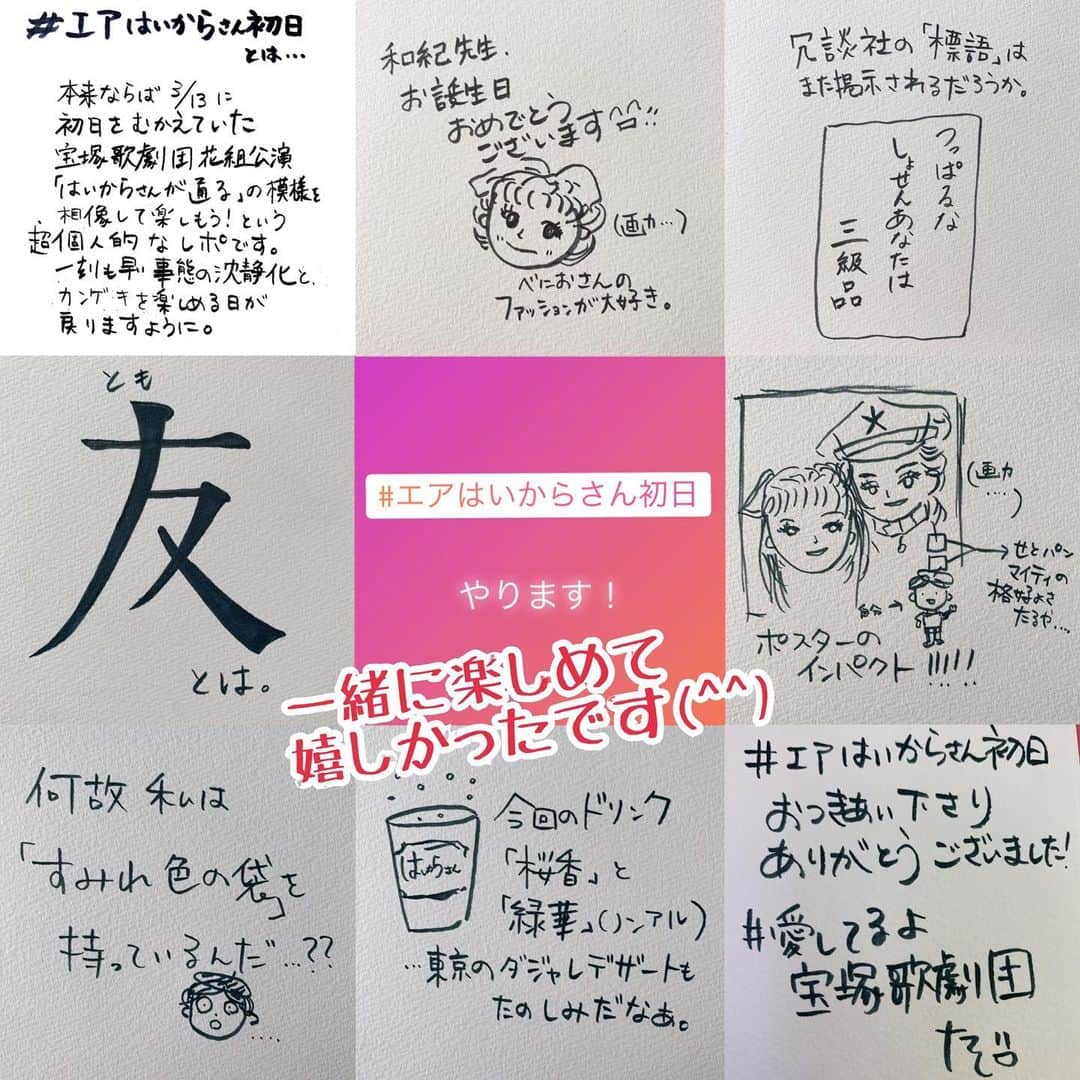 #エアはいからさん初日
とは…
本来ならば 3/13 に
初日をむかえていた
宝塚歌劇団花組公演
「はいからさんが通る」の模様を
想像して楽しもう!という
超個人的なレポです。
一刻も早い事態の沈静化と、
カンゲキを楽しめる日が
戻りますように。
和紀先生、
お誕生日
おめでとう
ございます^^!!
(画力…)
べにおさんの
ファッションが大好き。
冗談社の「標語」は
また掲示されるだろうか。
つっぱるな
しょせんあなたは
三級品
とも
友
とは。
#エアはいからさん初日
やります!
一緒に楽しめて
嬉しかったです(^^)
(画力
…)
せとパン
マイティの
格好よさ
たるや…。
自分→
ポスターの
インパクト!!!!!
何故私は
「すみれ色の袋」を
持っているんだ…??
はいからさん
今回のドリンク
「桜香」と
「緑華」(ノンアル)
…東京のダジャレデザートも
たのしみだなあ。
#エアはいからさん初日
おつきあい下さり
ありがとうございました!
#愛してるよ
宝塚歌劇団
だぞ